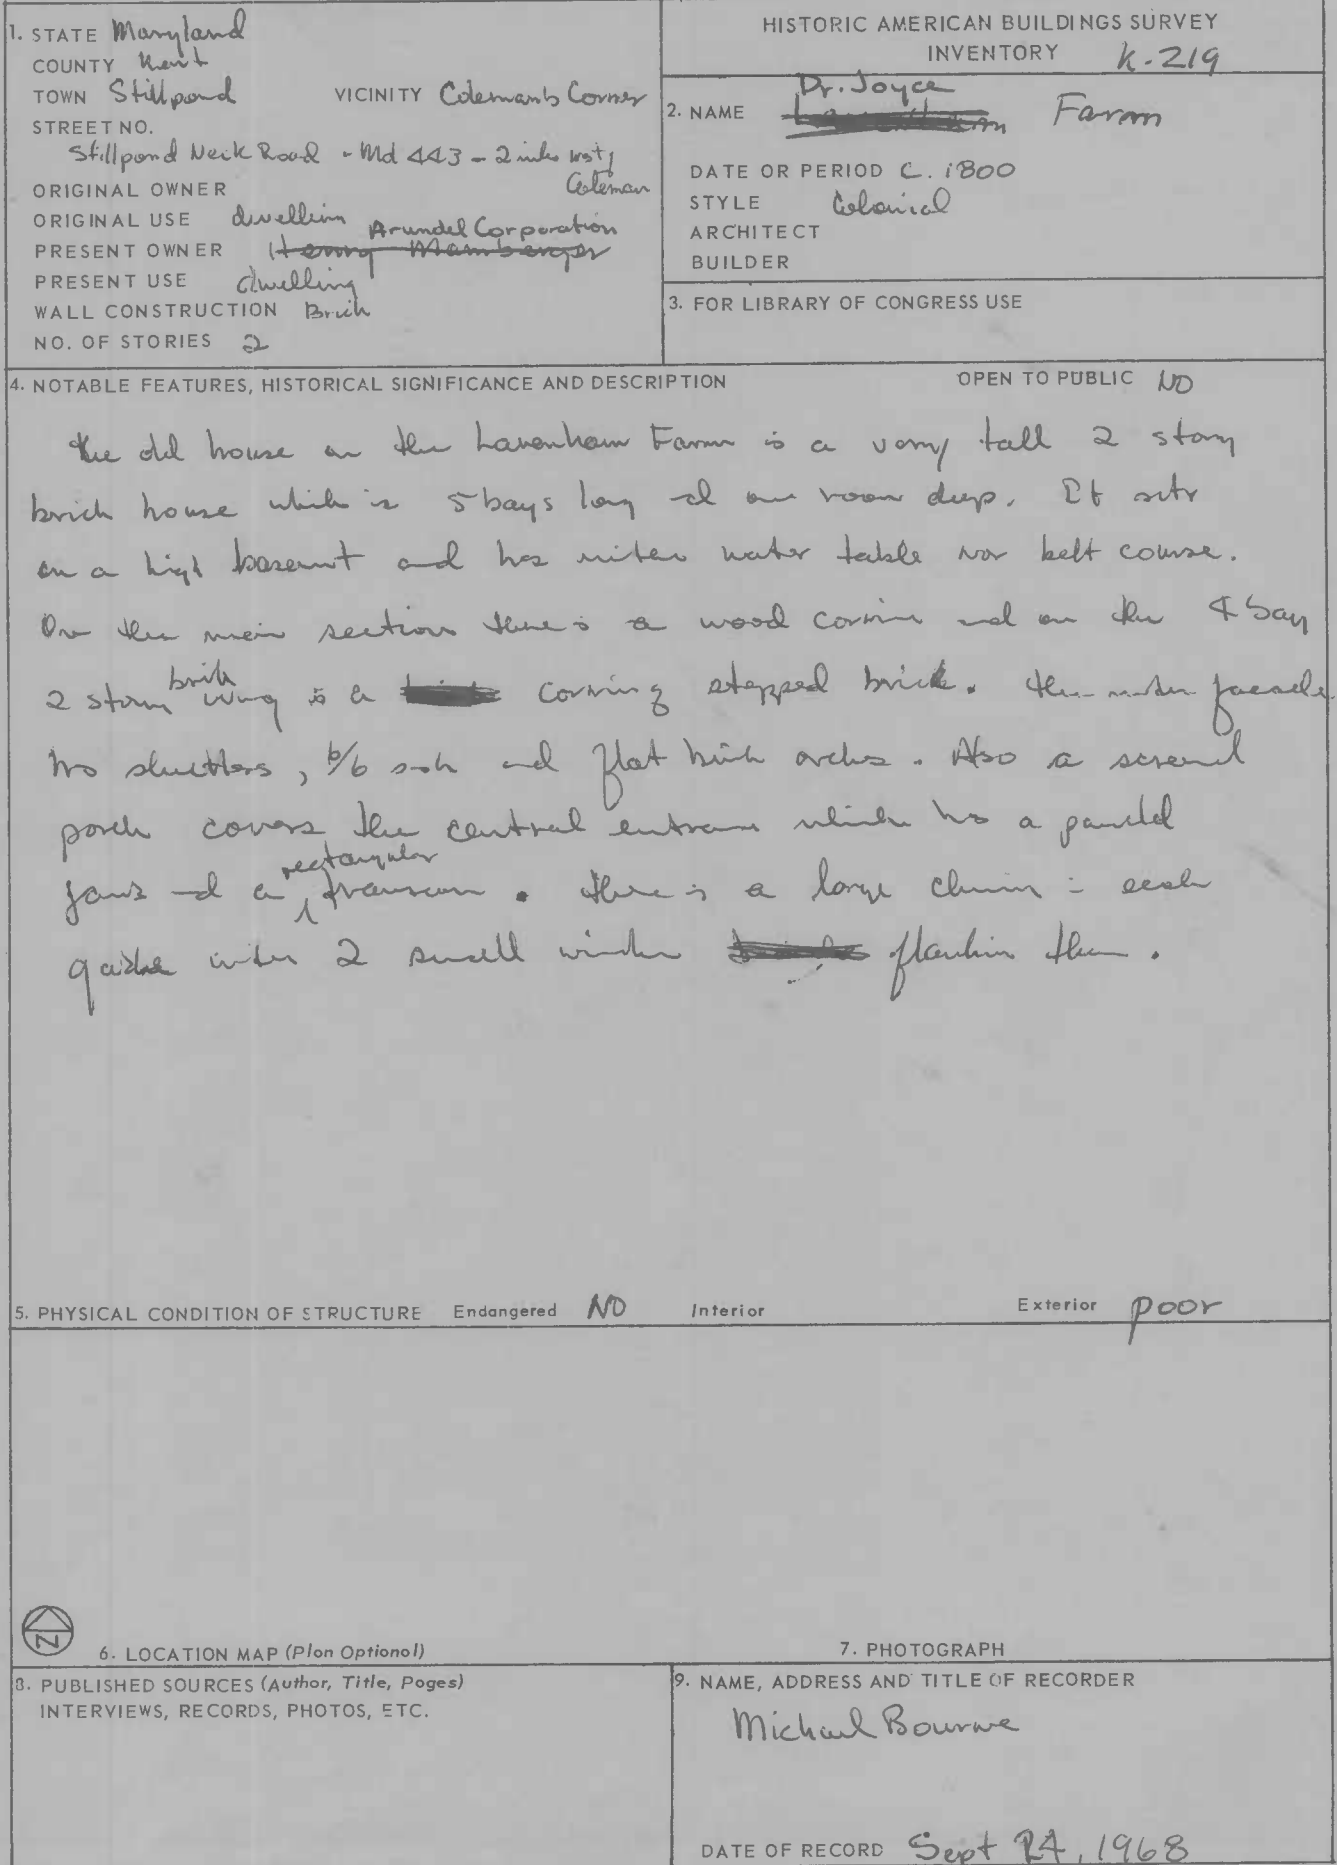 1. STATE Maryland
COUNTY Kent
TOWN Stillpond VICINITY Coleman's Corner
STREET NO.
Stillpond Neck Road - Md 443 - 2 miles west of
Coleman
ORIGINAL OWNER
ORIGINAL USE dwelling
PRESENT OWNER Arundel Corporation
Henry
PRESENT USE dwelling
WALL CONSTRUCTION Brick
NO. OF STORIES 2
HISTORIC AMERICAN BUILDINGS SURVEY
INVENTORY K-219
2. NAME Dr. Joyce Farm
DATE OR PERIOD C. 1800
STYLE Colonial
ARCHITECT
BUILDER
3. FOR LIBRARY OF CONGRESS USE
4. NOTABLE FEATURES, HISTORICAL SIGNIFICANCE AND DESCRIPTION OPEN TO PUBLIC NO
The old house on the Lavenham Farm is a very tall 2 story
brick house which is 5 bays long and one room deep. It sits
on a high basement and has neither water table nor belt course.
On the main section there is a wood cornice and on the 4 bay
2 story brick wing is a corning stepped brick. The facade
has shutters, 6/6 sash and flat brick arches. Also a screened
porch covers the central entrance which has a paneled
jambs and a rectangular transom. There is a large chimney in each
gable with 2 small windows flanking them.
5. PHYSICAL CONDITION OF STRUCTURE Endangered NO Interior Exterior poor
N
6. LOCATION MAP (Plan Optional)
7. PHOTOGRAPH
8. PUBLISHED SOURCES (Author, Title, Pages)
INTERVIEWS, RECORDS, PHOTOS, ETC.
9. NAME, ADDRESS AND TITLE OF RECORDER
Michael Bourne
DATE OF RECORD Sept 24, 1968